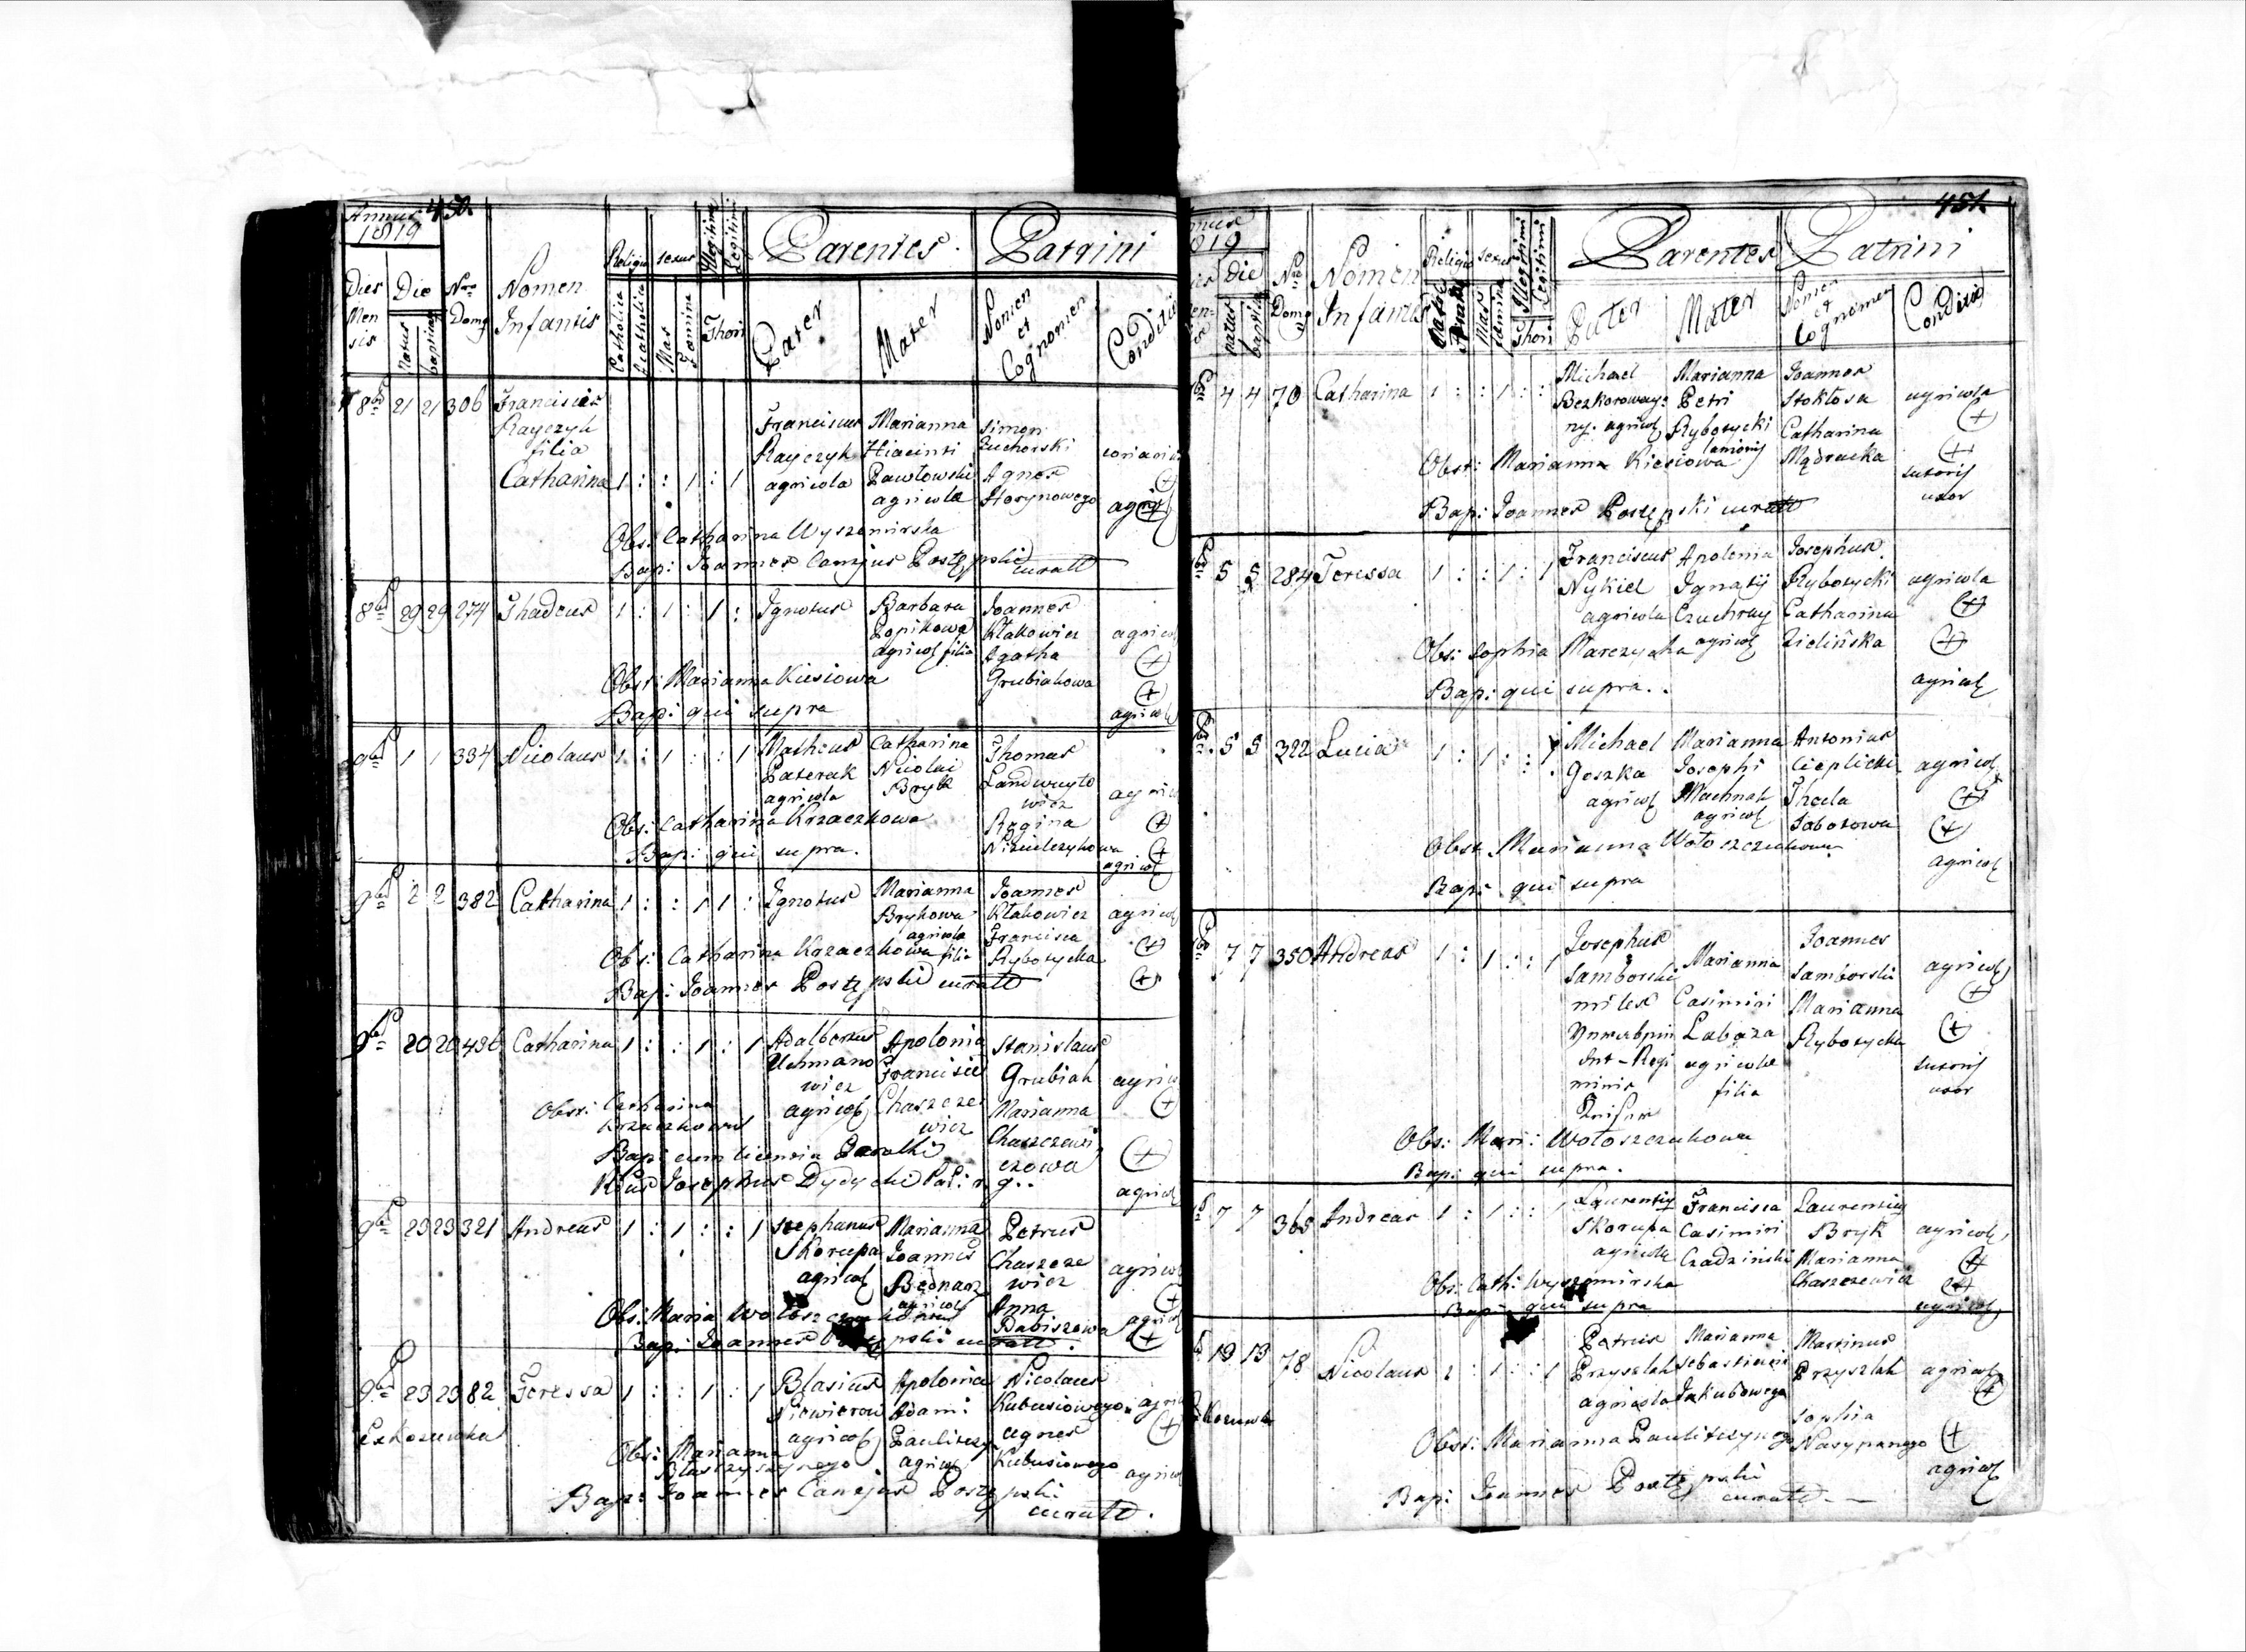 Annus 450.
1819
Dies Mensis
Die
Natus
baptisat
Nro Domq
Nomen
Infantis
Religio
Catholica
Acatholica
sexus
Mas
Femina
Illegitimi
Legitimi
Thori
Parentes.
Pater
Mater
Patrini
Nomen
et
Cognomen
Conditio
8br 21 21 306 Francisci
Rayczyk
filia
Catharina 1 : : 1 : 1
Franciscus
Rayczyk
agricola
Marianna
Hiacinti
Pawłowski
agricola
Simon
Żuchorski
Agnes
Horynowego
coriarius
agricol
Obs: Catharina Wyszomirska
Bap: Joannes Cancjus Postępski curatt
8br 29 29 274 Thadeus 1 : 1 : 1 :
Ignotus
Barbara
Popikowa
agricol filia
Joannes
Kłakowicz
Agatha
Grubiakowa
agricol
agricol
Obst: Marianna Kiesiowa
Bap: qui supra
9br 1 1 334 Nicolaus 1 : 1 : : 1
Matheus
Paterak
agricola
Catharina
Nicolai
Bryk
Thomas
Landwuyto
wicz
Regina
agricol
agricol
Obs: Catharina Krzaczkowa
Bap: qui supra.
9br 2 2 382 Catharina 1 : : 1 1 :
Ignotus
Marianna
Brykowa
agricola
filia
Joannes
Kłakowicz
Francisca
Rybotycka
agricol
Obs: Catharina Krzaczkowa
Bap: Joannes Postępski curatt
9br 20 20 436 Catharina 1 : : 1 : 1
Adalbertus
Uchmano
wicz
agricol
Apolonia
Francisci
Chaszcze
wicz
Stanislaus
Grubiak
Marianna
Chaszczewi
czowa
agricol
agricol
Obst: Catharina
Krzaczkowa
Bap: cum licentia Parochi
Josephus Dydycki
9br 23 23 321 Andreas 1 : 1 : : 1
Stephanus
Skorupa
agricol
Marianna
Joannis
Bednarz
agricol
Petrus
Chaszcze
wicz
Anna
Babiszowa
agricol
agricol
Obs: Maria Wołoszczakowa
Bap: Joannes Postępski curatt.
9br 23 23 82 Teressa 1 : : 1 : 1
Blasius
agricol
Apolonia
Adami
agricol
Nicolaus
Kubusiowego
Agnes
Kubusiowego
agricol
Obs: Marianna
Bap: Joannes Cancjus Postępski
curatt.
451.
819
Die
natus
Nro
Domq
Nomen
Infantis
Religio
sexus
Mas
femina
Illegitimi
Legitimi
Thori
Parentes
Pater
Mater
Patrini
Nomen
et
Cognomen
Conditio
4 4 70 Catharina 1 : : 1 : :
Michael
ny. agricol
Marianna
Petri
Rybotycki
lanionis
Joannes
Stokłosa
Catharina
Mądracka
agricola
sutoris
uxor
Obst: Marianna Kiesiowa
Bap: Joannes Postępski curatt
5 5 284 Teressa 1 : : 1 : 1
Franciscus
Nykiel
agricola
Apolonia
Ignatij
Czuchray
agricol
Josephus
Rybotycki
Catharina
Zielińska
agricola
agricol
Obs: Sophia Marczycha
Bap: qui supra..
5 5 322 Lucia 1 : 1 : : 1
Michael
Goszka
agricol
Marianna
Josephi
Machnak
agricol
Antonius
Cieplicki
Thecla
Sobotowa
agricol
agricol
Obst Marianna Wołoszczakowa
Bap: qui supra
7 7 350 Andreas 1 : 1 : : 1
Josephus
Samborski
miles
Marianna
Casimiri
Labaza
agricolae
filia
Joannes
Samborski
Marianna
Rybotycka
agricol
sutoris
uxor
Obs: Mari: Wołoszczakowa
Bap: qui supra.
7 7 365 Andreas 1 : 1 : : 1
Laurentij
Skorupa
agricola
Francisca
Casimiri
Czadziński
Laurentius
Bryk
Marianna
Chaszczewicz
agricol
agricol
Obs: Cath: Wyszomirska
Bap: qui supra
13 13 78 Nicolaus 1 : 1 : : 1
Petrus
Przyszlak
agricola
Marianna
Sebastiani
Jakubowego
Martinus
Przyszlak
Sophia
Nasypanego
agricol
agricol
Obst: Marianna
Bap: Joannes Postępski
curatt